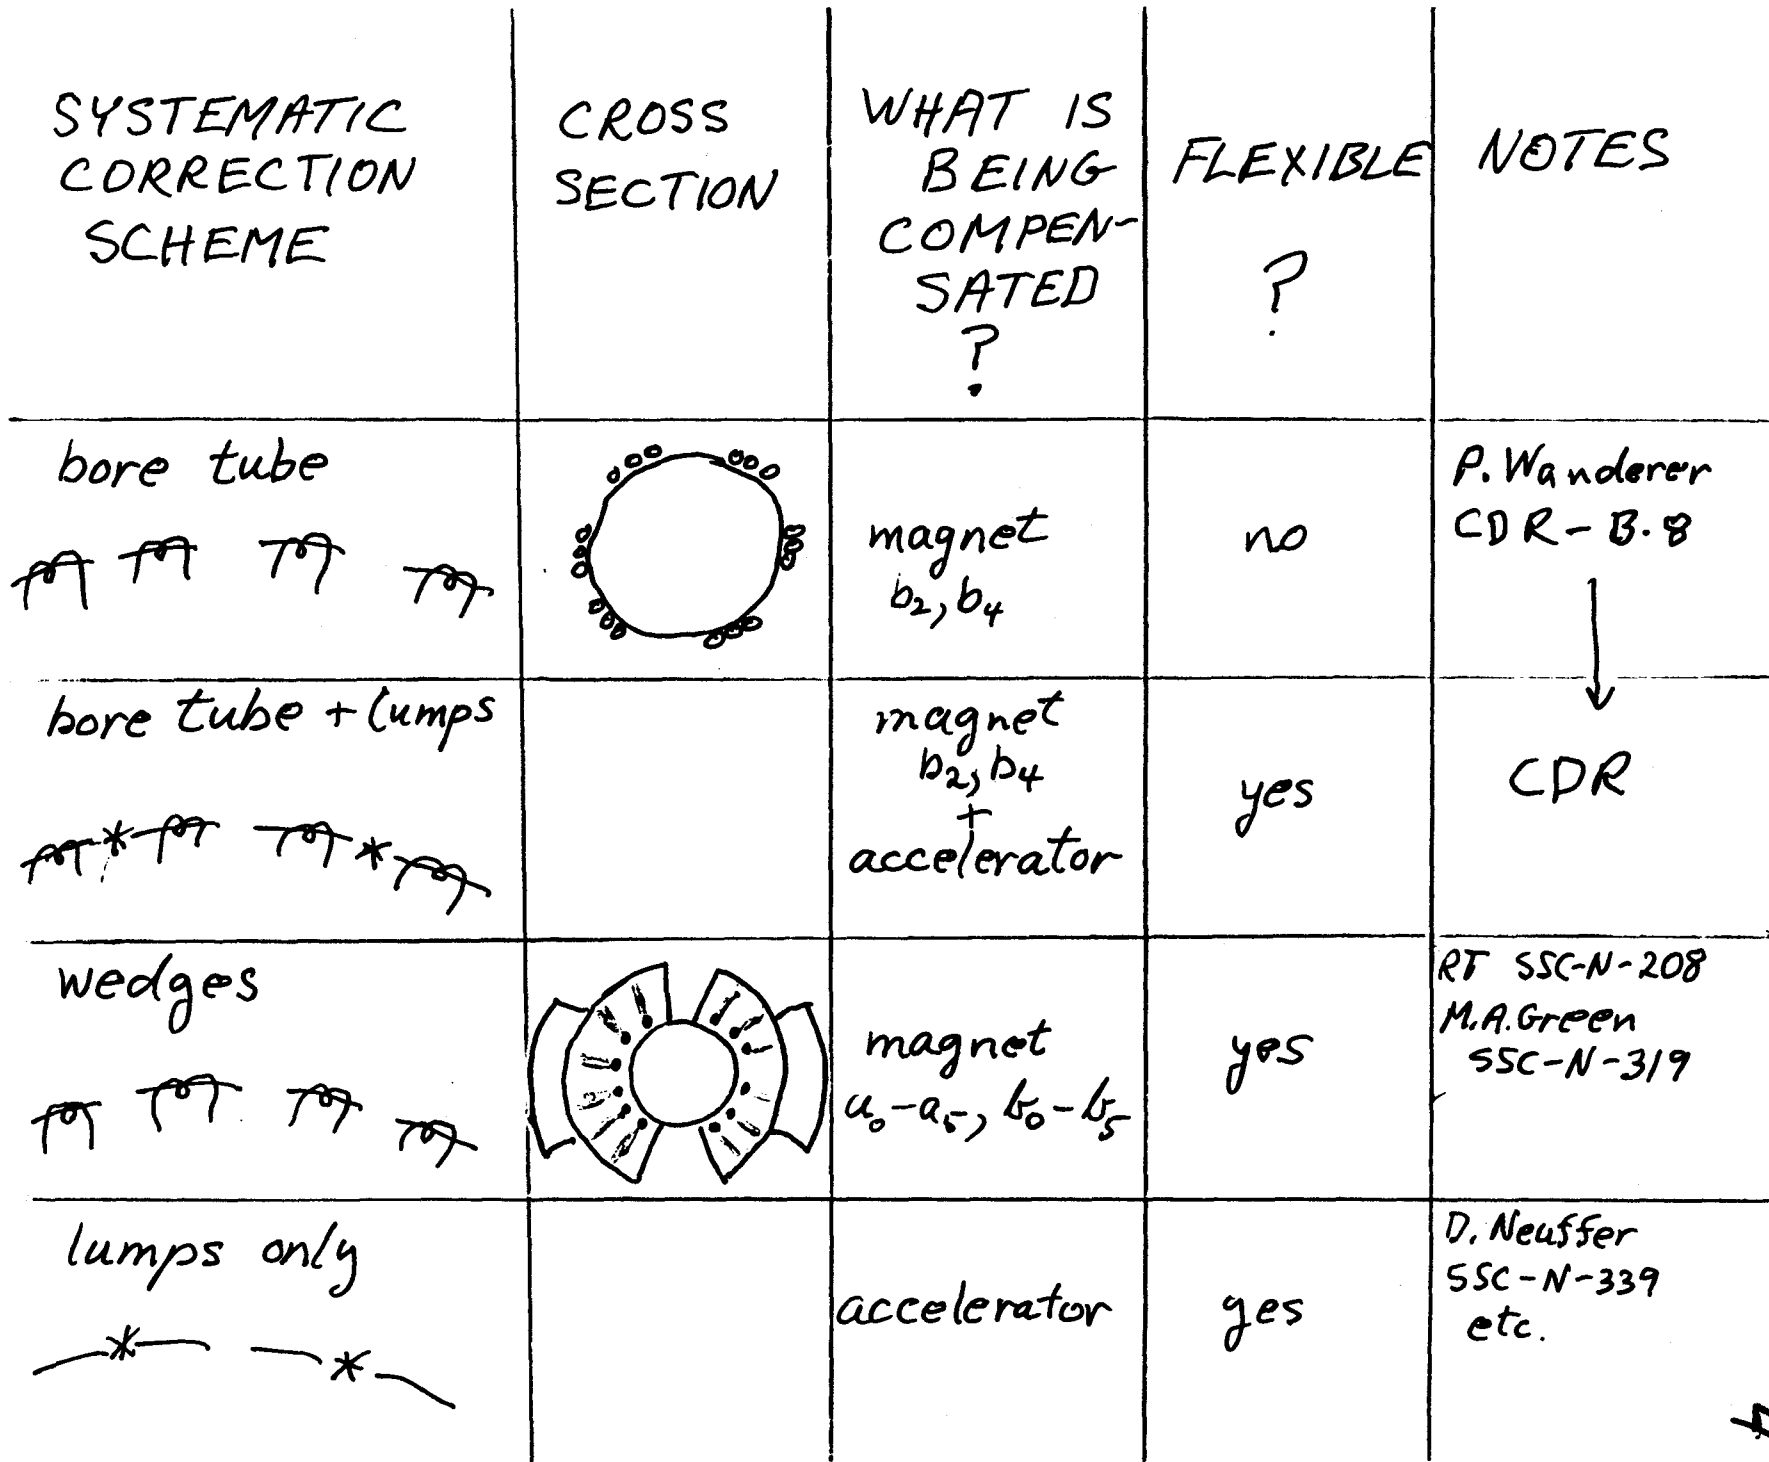 SYSTEMATIC
CORRECTION
SCHEME
CROSS
SECTION
WHAT IS
BEING
COMPEN-
SATED
?
FLEXIBLE
?
NOTES
bore tube
magnet
b₂, b₄
no
P. Wanderer
CDR - B.8
bore tube + lumps
magnet
b₂, b₄
+
accelerator
yes
CDR
wedges
magnet
a₀-a₅, b₀-b₅
yes
RT SSC-N-208
M.A.Green
SSC-N-319
lumps only
accelerator
yes
D. Neuffer
SSC-N-339
etc.
4